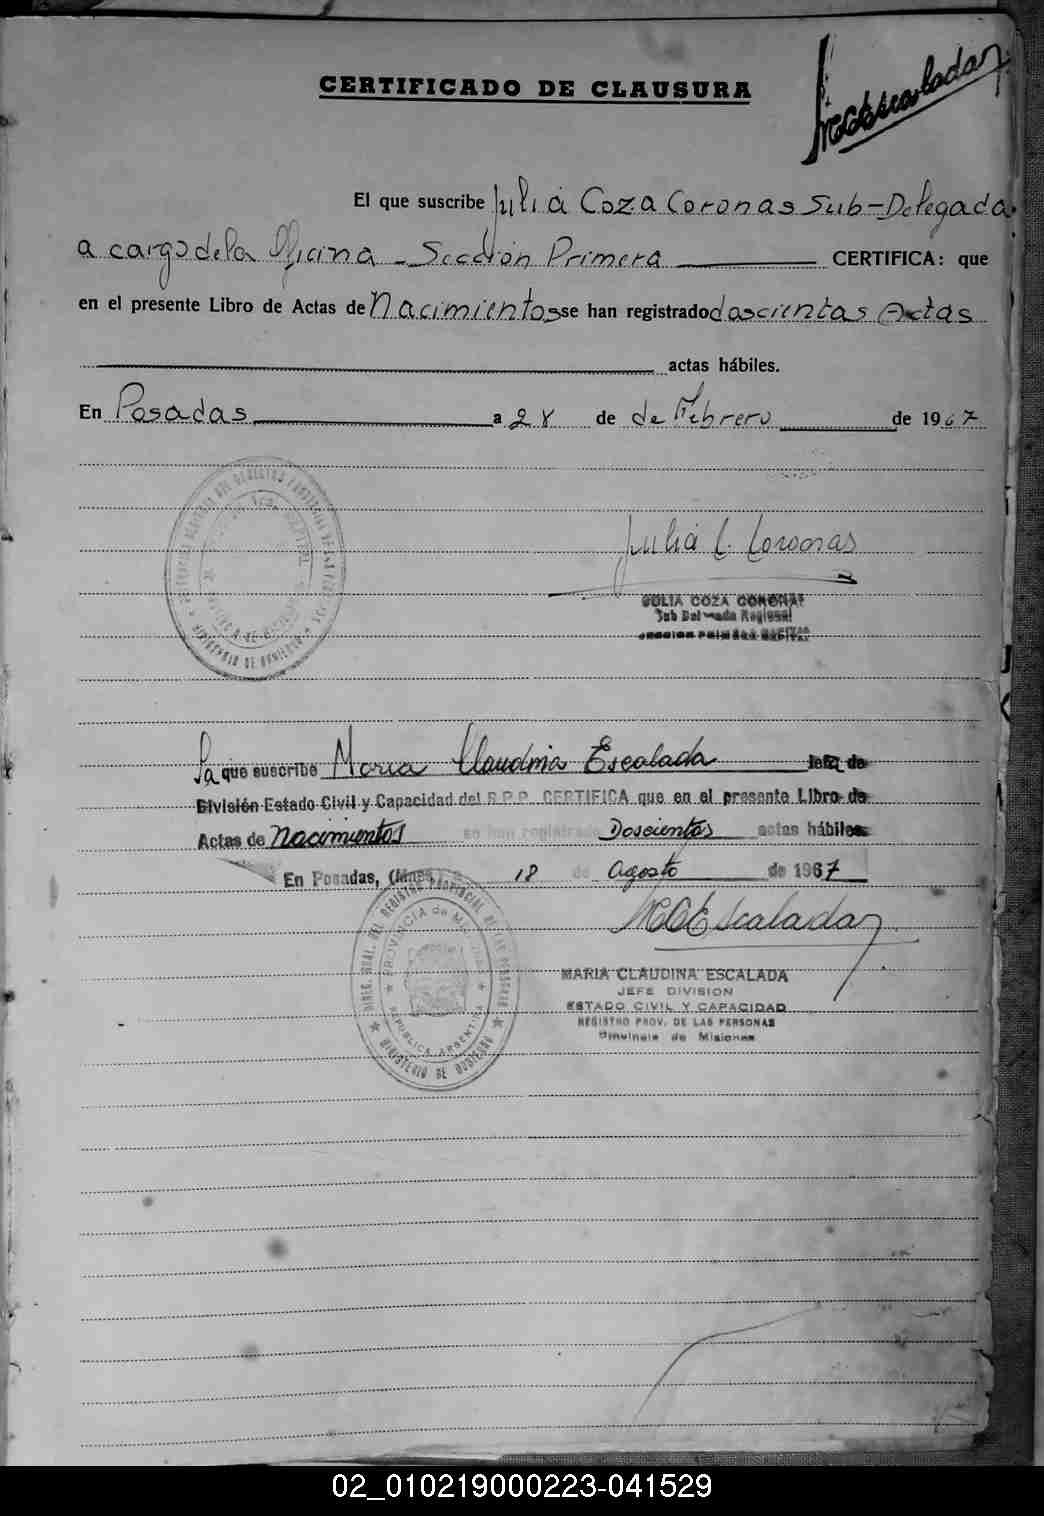 CERTIFICADO DE CLAUSURA
MCEscalada
El que suscribe Julia Coza Coronas Sub-Delegada
a cargo de la Oficina - Sección Primera CERTIFICA: que
en el presente Libro de Actas de Nacimientos se han registrado doscientas Actas
actas hábiles.
En Posadas a 28 de de Febrero de 1967
Julia C. Coronas
JULIA COZA CORONAS
Sub Delegada Regional
SECCION PRIMERA CAPITAL
La que suscribe Maria Claudina Escalada Jefa de
División Estado Civil y Capacidad del R.P.P. CERTIFICA que en el presente Libro de
Actas de Nacimientos se han registrado Doscientos actas hábiles.
En Posadas, (Mnes) 18 de Agosto de 1967
DIREC. GRAL. DEL REGISTRO PROVINCIAL DE LAS PERSONAS
MINISTERIO DE GOBIERNO
PROVINCIA de MISIONES
REPUBLICA ARGENTINA
MCEscalada
MARIA CLAUDINA ESCALADA
JEFE DIVISION
ESTADO CIVIL Y CAPACIDAD
REGISTRO PROV. DE LAS PERSONAS
Provincia de Misiones
02_010219000223-041529